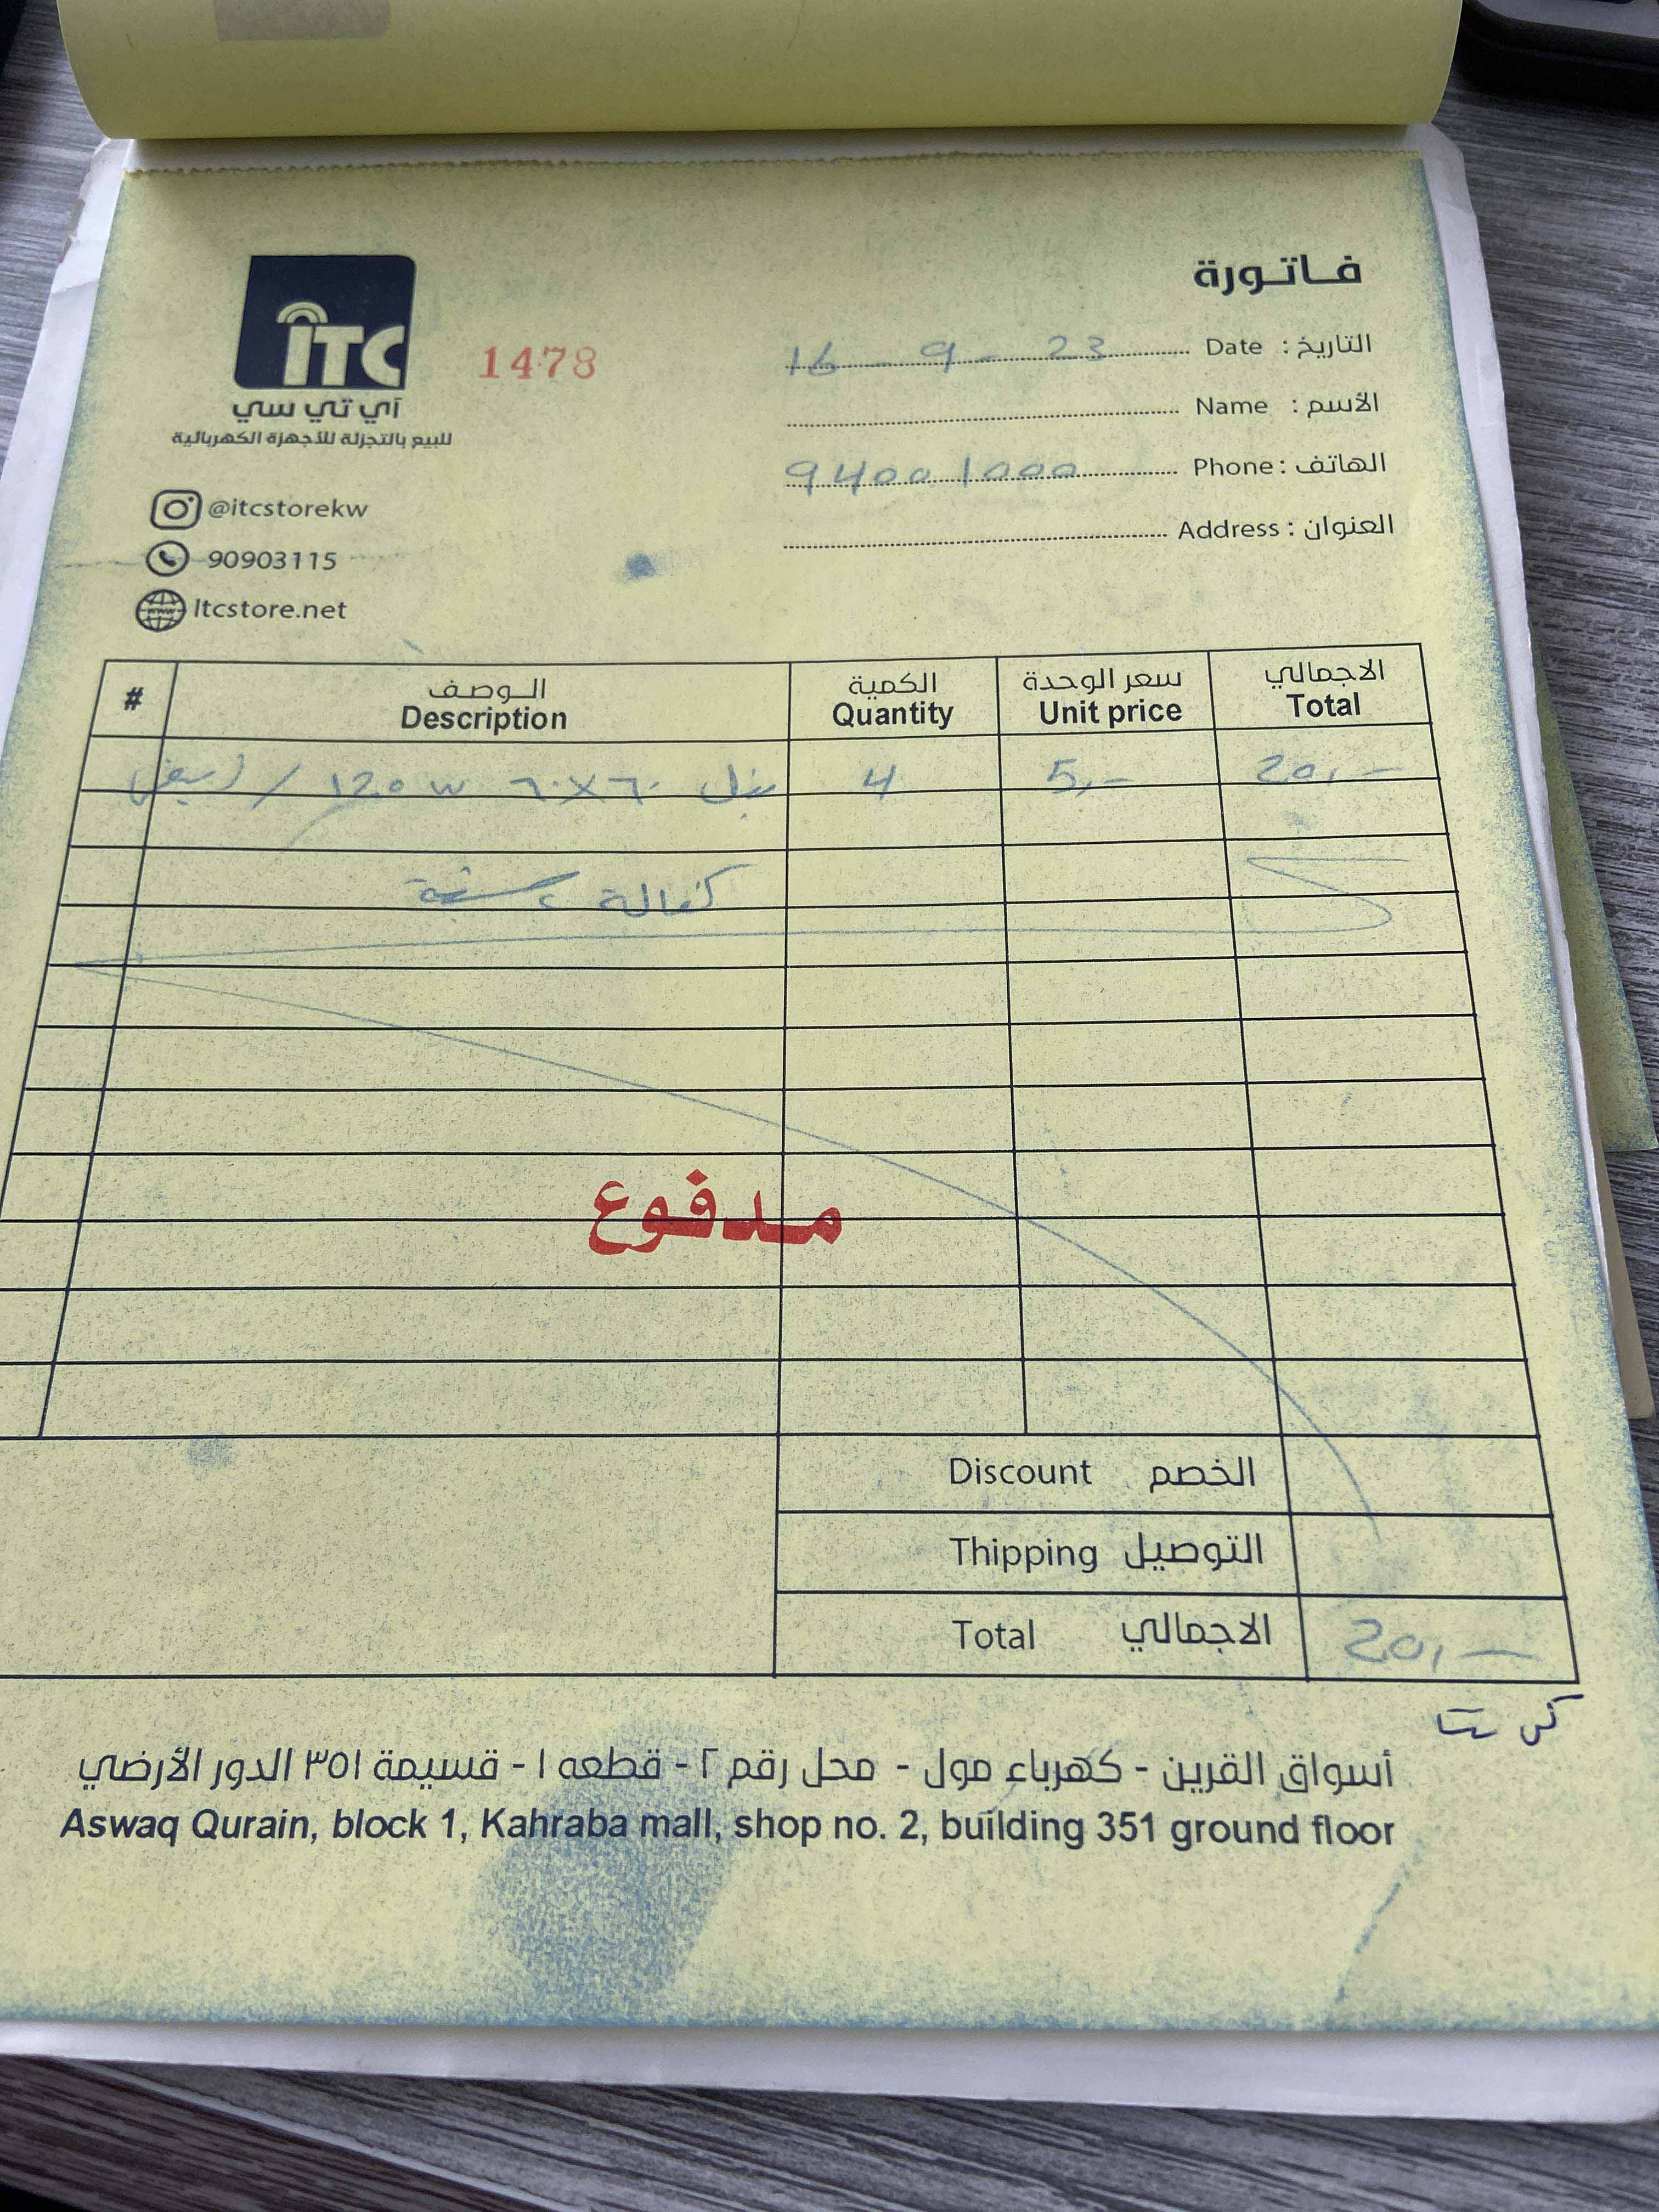 فاتورة
ITC
آي تي سي
للبيع بالتجزئة للأجهزة الكهربائية
1478
التاريخ : Date 16 - 9 - 23
الأسم : Name
الهاتف : Phone 94001000
العنوان : Address
@itcstorekw
90903115
Itcstore.net
# الوصف الكمية سعر الوحدة الاجمالي
Description Quantity Unit price Total
بنل ٦٠X٦٠ 120w / ابيض 4 5,- 20,-
كفالة سنة
مدفوع
Discount الخصم
Thipping التوصيل
Total الاجمالي 20,-
أسواق القرين - كهرباء مول - محل رقم ٢ - قطعه ١ - قسيمة ٣٥١ الدور الأرضي
Aswaq Qurain, block 1, Kahraba mall, shop no. 2, building 351 ground floor